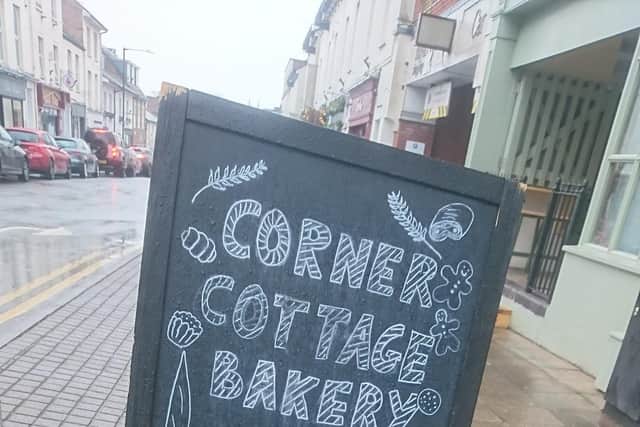 CORNER
COTTAGE
BAKERY